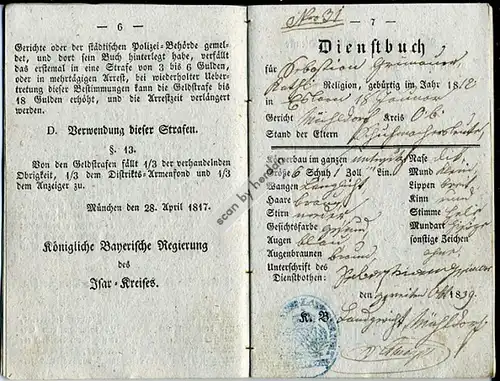 — 6 —
Gerichte oder der städtischen Polizei-Behörde gemel-
det, und dort sein Buch hinterlegt habe, verfällt
das erstemal in eine Strafe von 3 bis 6 Gulden,
oder in mehrtägigen Arrest, bei wiederholter Ueber-
tretung dieser Bestimmungen kann die Geldstrafe bis
18 Gulden erhöht, und die Arrestzeit verlängert
werden.
D. Verwendung dieser Strafen.
§. 13.
Von den Geldstrafen fällt 1/3 der verhandelnden
Obrigkeit, 1/3 dem Distrikts-Armenfond und 1/3
dem Anzeiger zu.
München den 28. April 1817.
Königliche Bayerische Regierung
des
Isar-Kreises.
Nro 31
— 7 —
Dienstbuch
für Sebastian
Kath. Religion, gebürtig im Jahr 1812
in 18 Januar
Gericht Mühldorf Kreis O.b.
Stand der Eltern
Körperbau im ganzen untersetzt Nase dick
Größe 6 Schuh Zoll Lin. Mund klein
Wangen länglicht Lippen
Haare braun Kinn rund
Stirn nieder Stimme hell
Gesichtsfarbe gesund Mundart
Augen blau sonstige Zeichen
Augenbraunen braun ohne
Unterschrift des
Dienstbothen: Sebastian
den zweiten Okt 1839.
K. B. Landgericht Mühldorf
scan by herdan